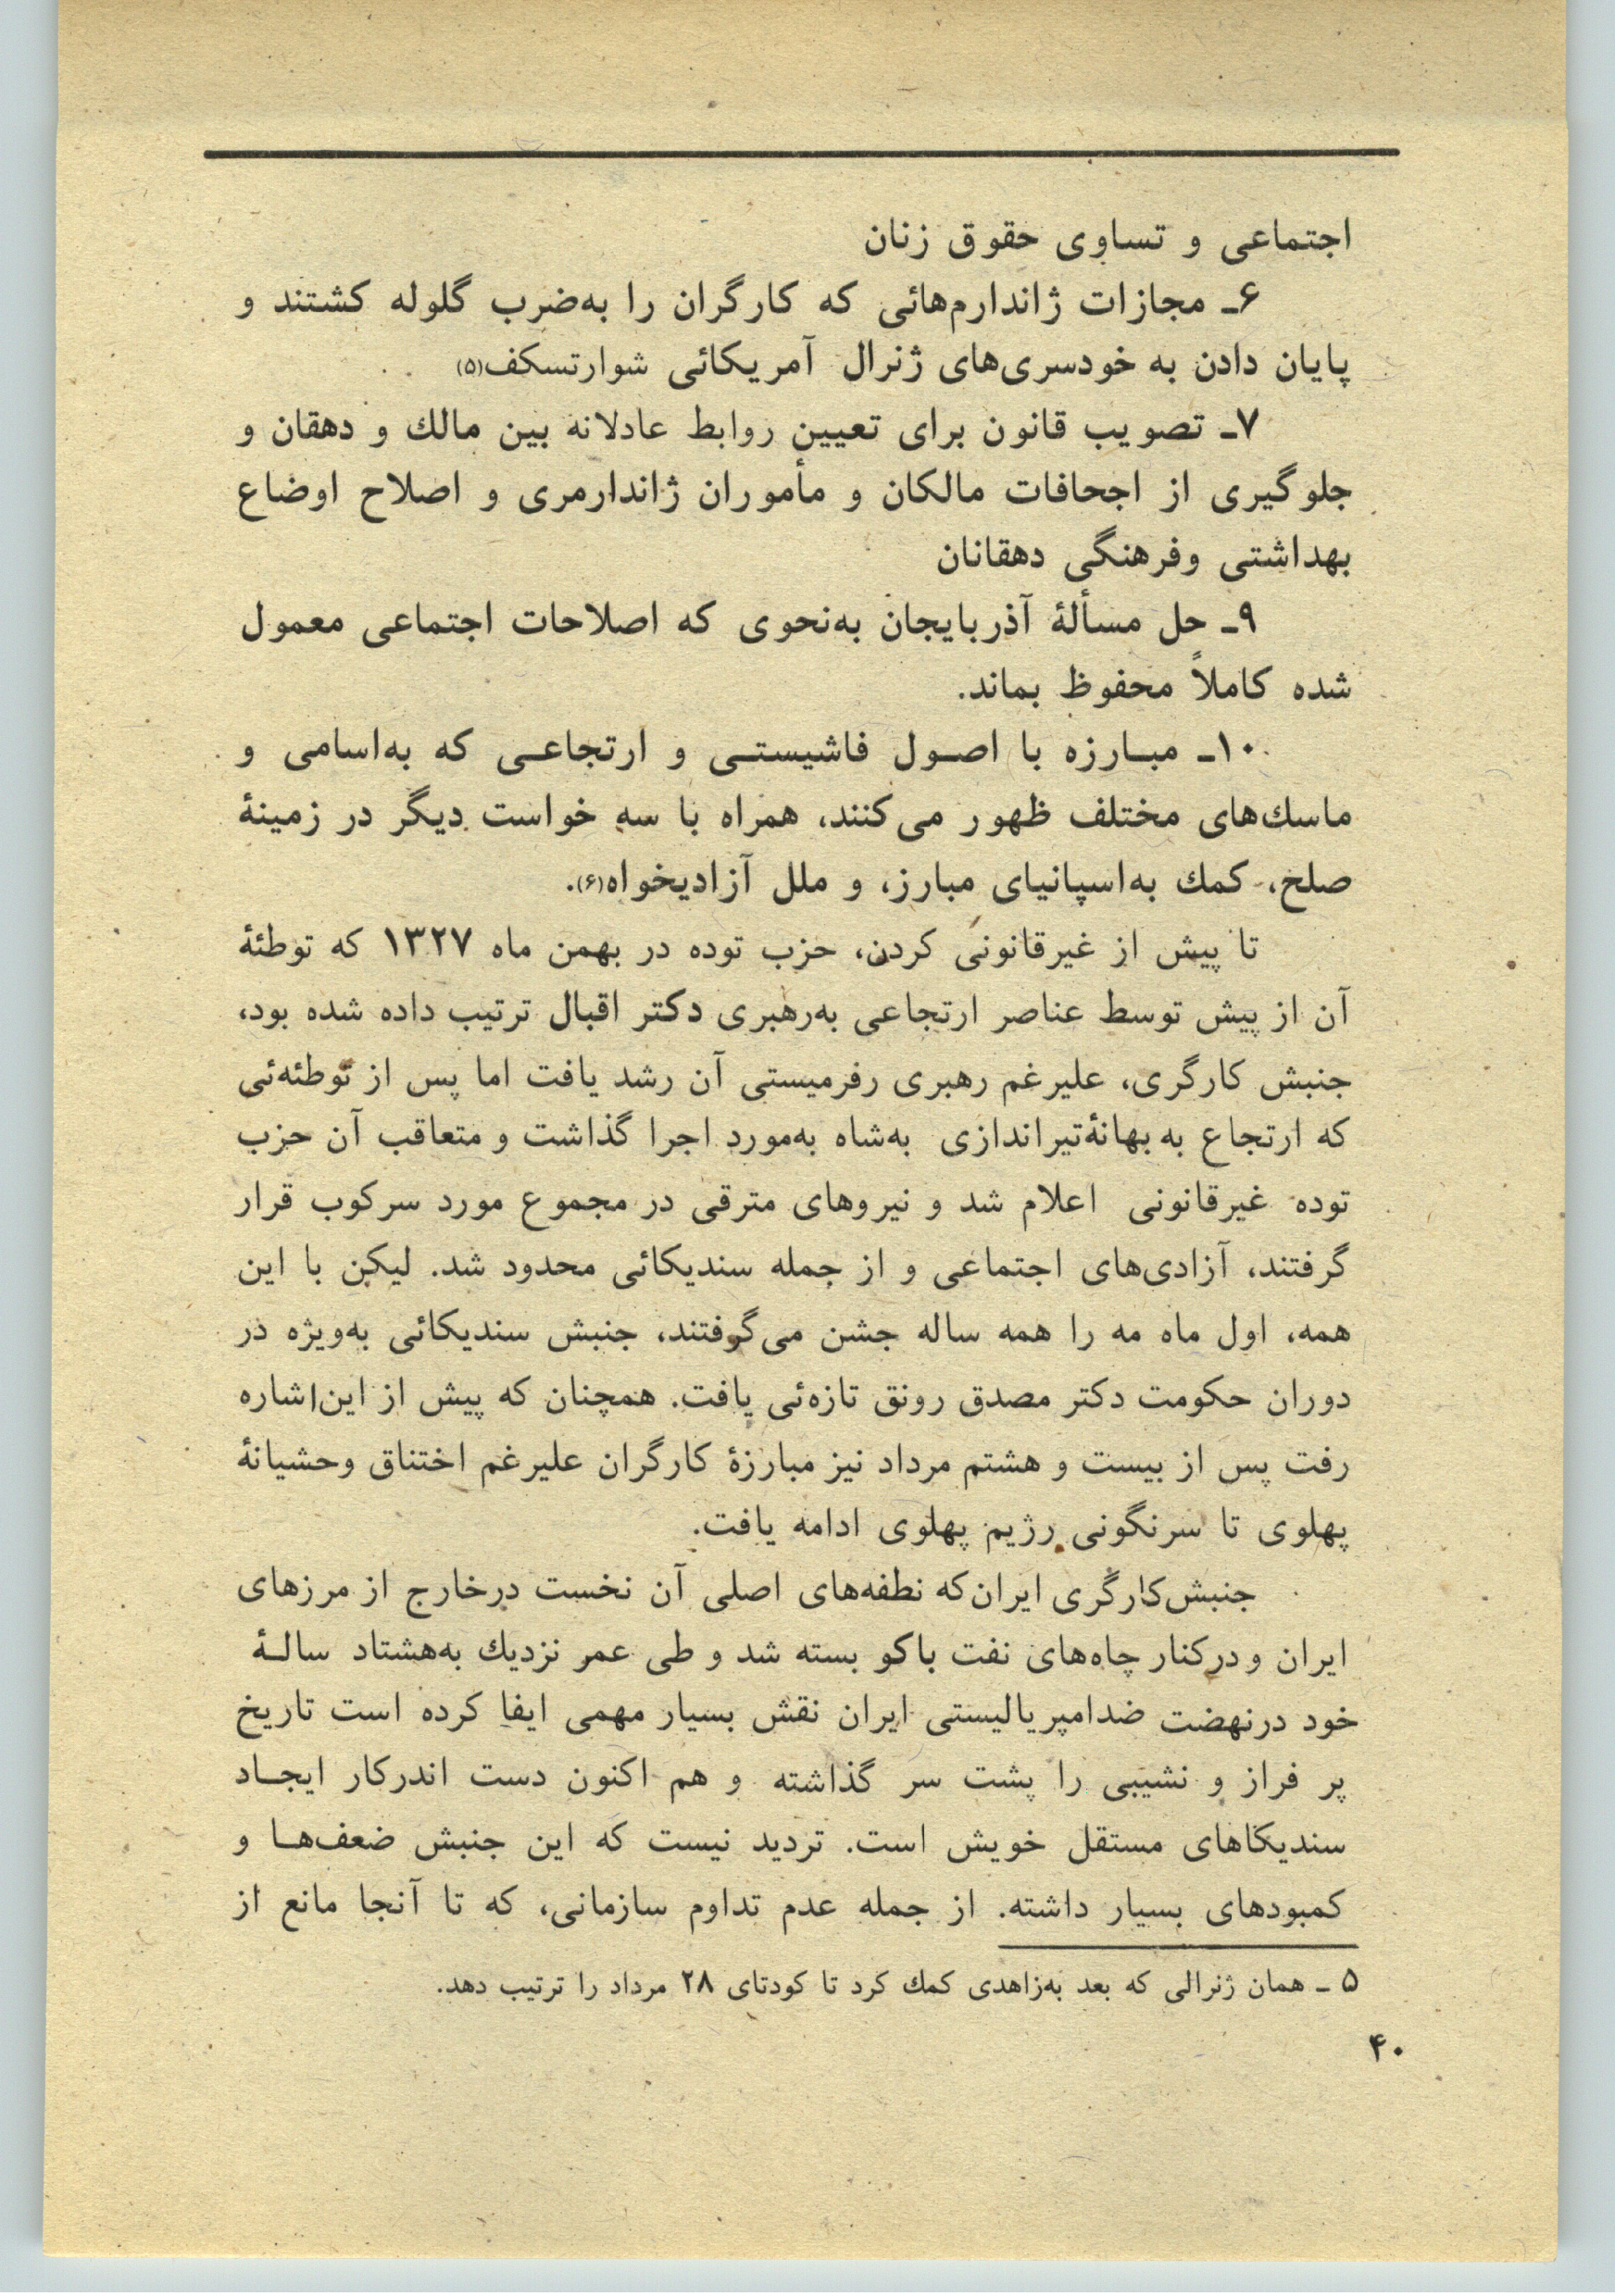 اجتماعی و تساوی حقوق زنان
۶ـ مجازات ژاندارم‌هائی که کارگران را به‌ضرب گلوله کشتند و
پایان دادن به خودسری‌های ژنرال آمریکائی شوارتسکف(۵)
۷ـ تصویب قانون برای تعیین روابط عادلانه بین مالك و دهقان و
جلوگیری از اجحافات مالکان و مأموران ژاندارمری و اصلاح اوضاع
بهداشتی وفرهنگی دهقانان
۹ـ حل مسألهٔ آذربایجان به‌نحوی که اصلاحات اجتماعی معمول
شده کاملاً محفوظ بماند.
۱۰ـ مبـارزه با اصـول فاشیستـی و ارتجاعـی که به‌اسامی و
ماسك‌های مختلف ظهور می‌کنند، همراه با سه خواست دیگر در زمینهٔ
صلح، کمك به‌اسپانیای مبارز، و ملل آزادیخواه(۶).
تا پیش از غیرقانونی کردن، حزب توده در بهمن ماه ۱۳۲۷ که توطئهٔ
آن از پیش توسط عناصر ارتجاعی به‌رهبری دکتر اقبال ترتیب داده شده بود،
جنبش کارگری، علیرغم رهبری رفرمیستی آن رشد یافت اما پس از توطئه‌ئی
که ارتجاع به بهانهٔ‌تیراندازی به‌شاه به‌مورد اجرا گذاشت و متعاقب آن حزب
توده غیرقانونی اعلام شد و نیروهای مترقی در مجموع مورد سرکوب قرار
گرفتند، آزادی‌های اجتماعی و از جمله سندیکائی محدود شد. لیکن با این
همه، اول ماه مه را همه ساله جشن می‌گرفتند، جنبش سندیکائی به‌ویژه در
دوران حکومت دکتر مصدق رونق تازه‌ئی یافت. همچنان که پیش از این‌اشاره
رفت پس از بیست و هشتم مرداد نیز مبارزهٔ کارگران علیرغم اختناق وحشیانهٔ
پهلوی تا سرنگونی رژیم پهلوی ادامه یافت.
جنبش‌کارگری ایران‌که نطفه‌های اصلی آن نخست درخارج از مرزهای
ایران و درکنار چاه‌های نفت باکو بسته شد و طی عمر نزدیك به‌هشتاد سالـهٔ
خود درنهضت ضدامپریالیستی ایران نقش بسیار مهمی ایفا کرده است تاریخ
پر فراز و نشیبی را پشت سر گذاشته و هم اکنون دست اندرکار ایجـاد
سندیکاهای مستقل خویش است. تردید نیست که این جنبش ضعف‌هـا و
کمبودهای بسیار داشته. از جمله عدم تداوم سازمانی، که تا آنجا مانع از
۵ ـ همان ژنرالی که بعد به‌زاهدی کمك کرد تا کودتای ۲۸ مرداد را ترتیب دهد.
۴۰